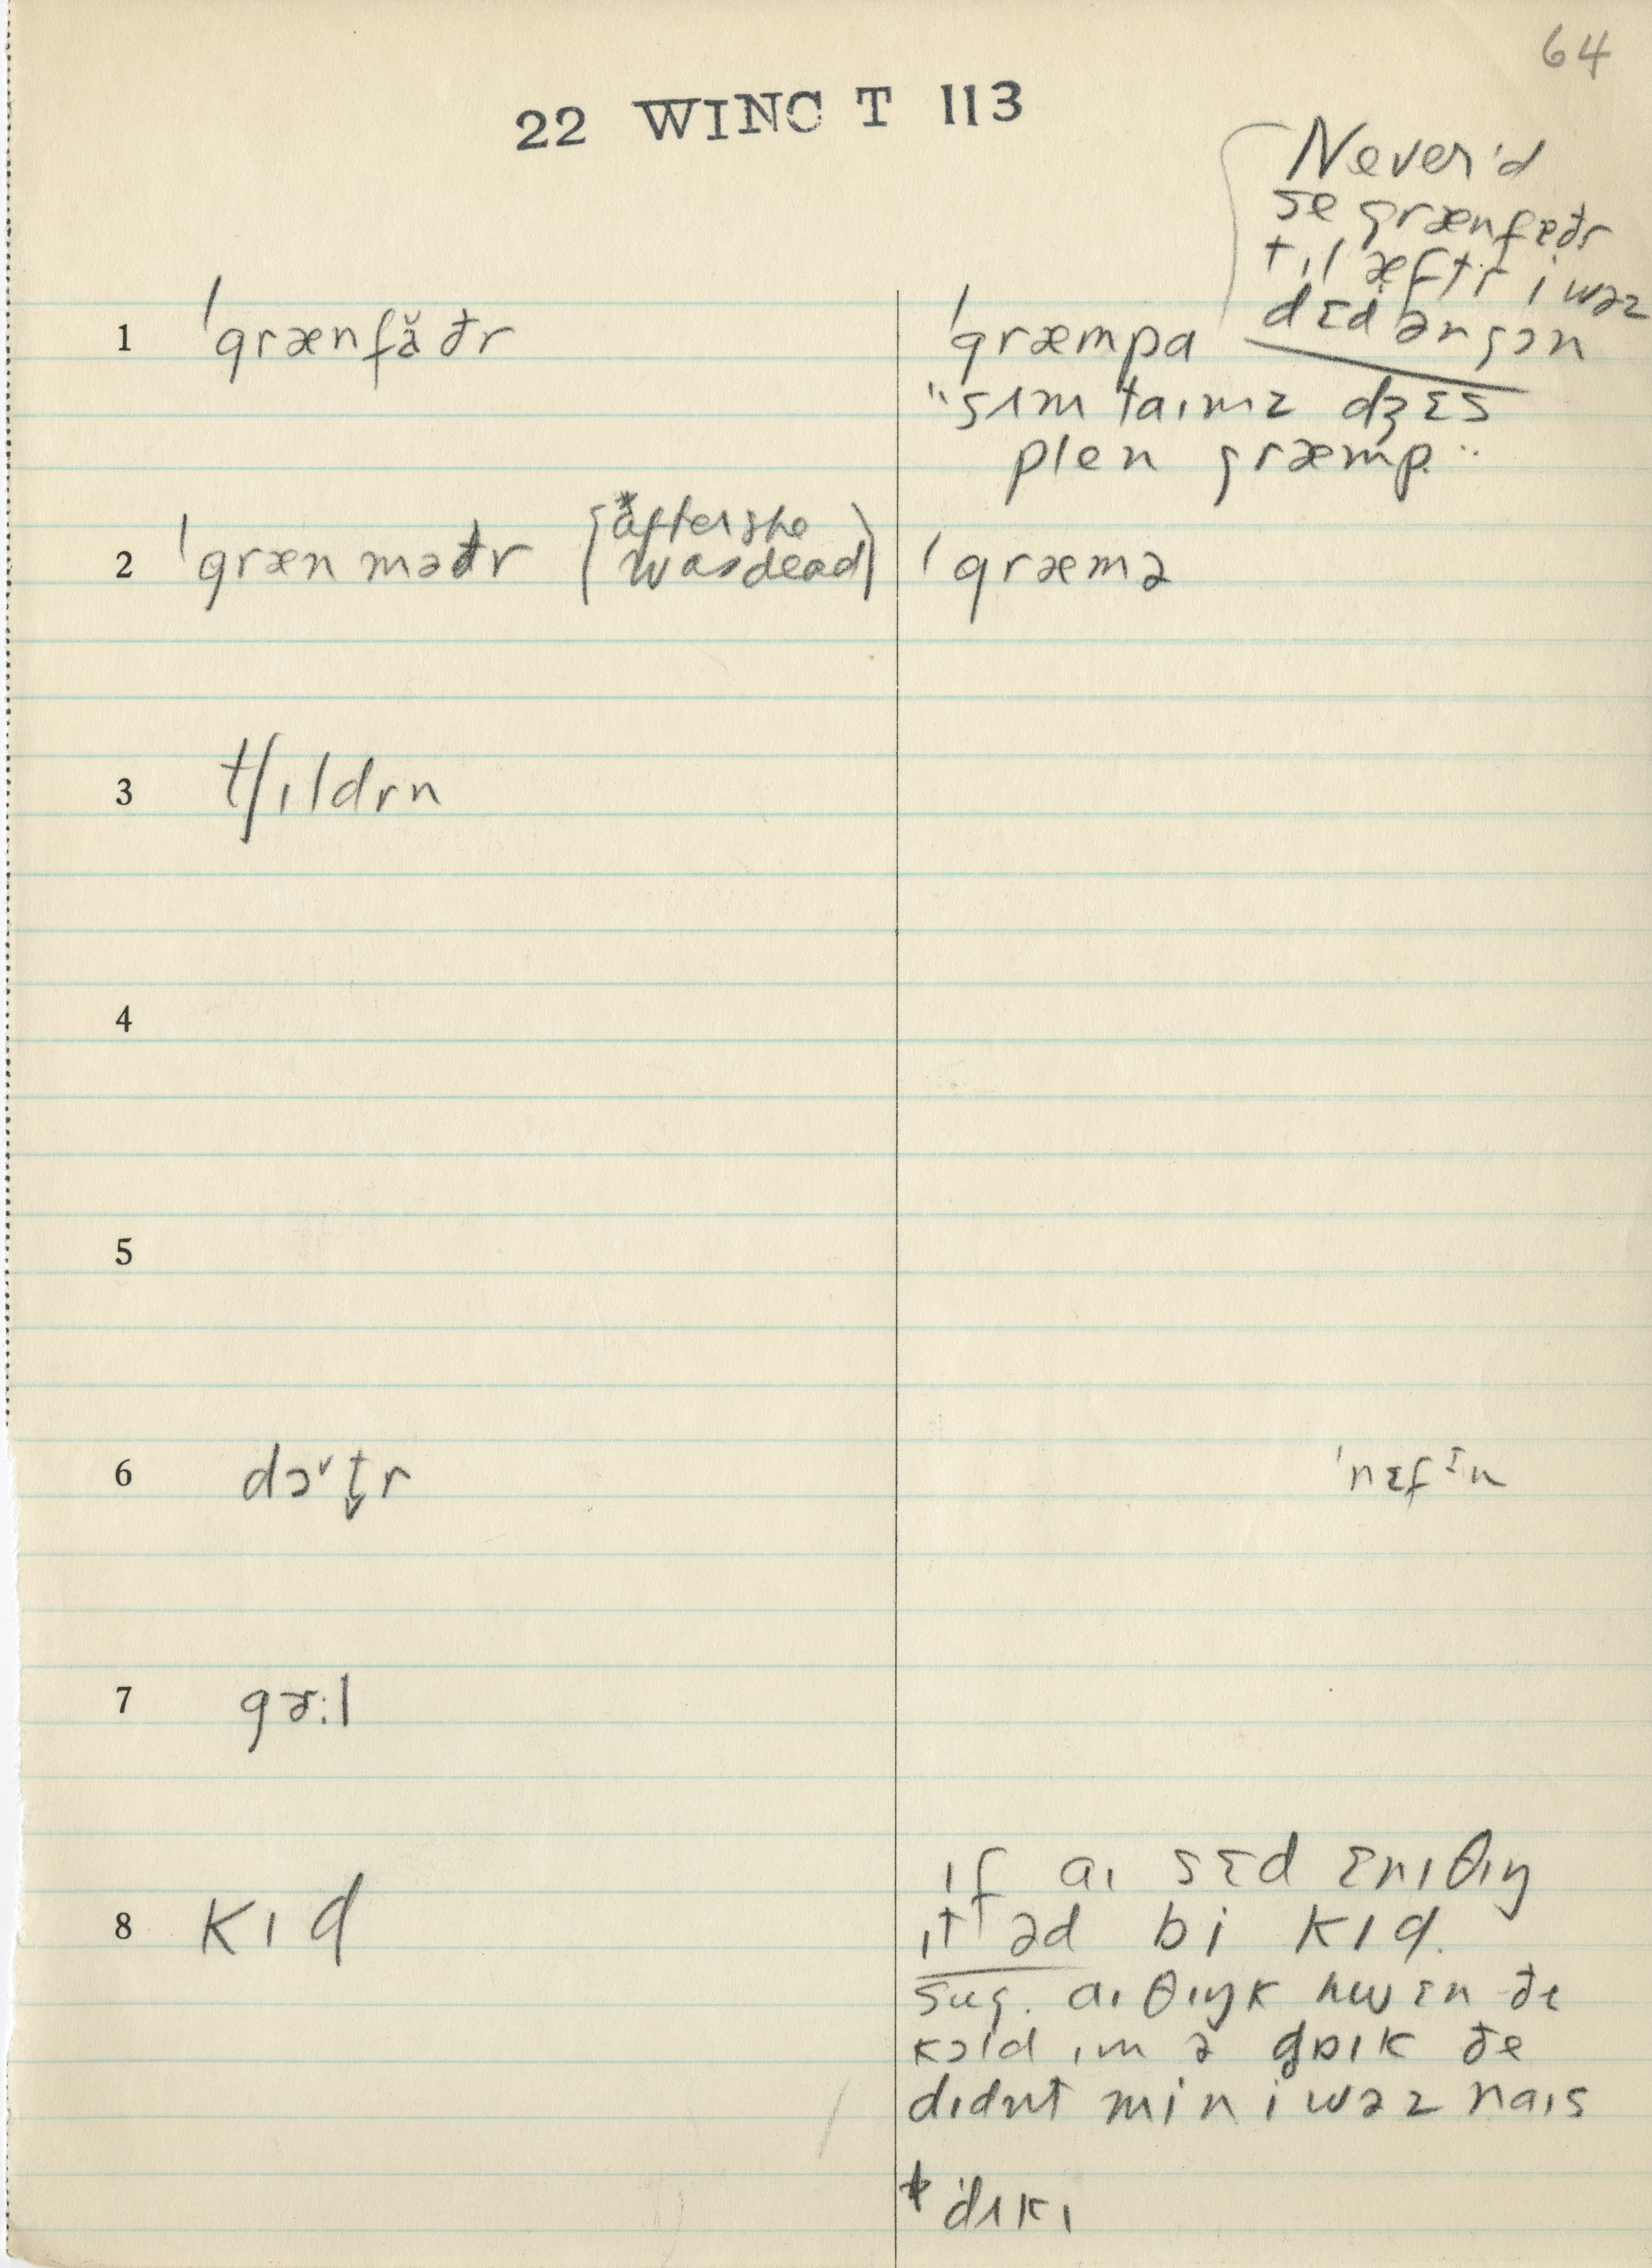 64
22 WINC T 113
Never'd
se grænfæðr
tıl æftr i wəz
dɛd ən gɔn
1 ˈgrænfăðr ˈgræmpa
"sʌm taımz dʒɛs
plen græmp"
2 ˈgræn məðr (*after she was dead) ˈgræmə
3 tʃıldrn
4
5
6 dɔ˅t̬r ˈnɛfɪn
7 gɚ:l
8 kıd
ıf aı sɛd ɛnıθıŋ
ıt əd bi kıd.
sug. aı θıŋk hwɛn ðe
kɔld ım ə
didnt min i wəz naıs
* ˈdʌkı